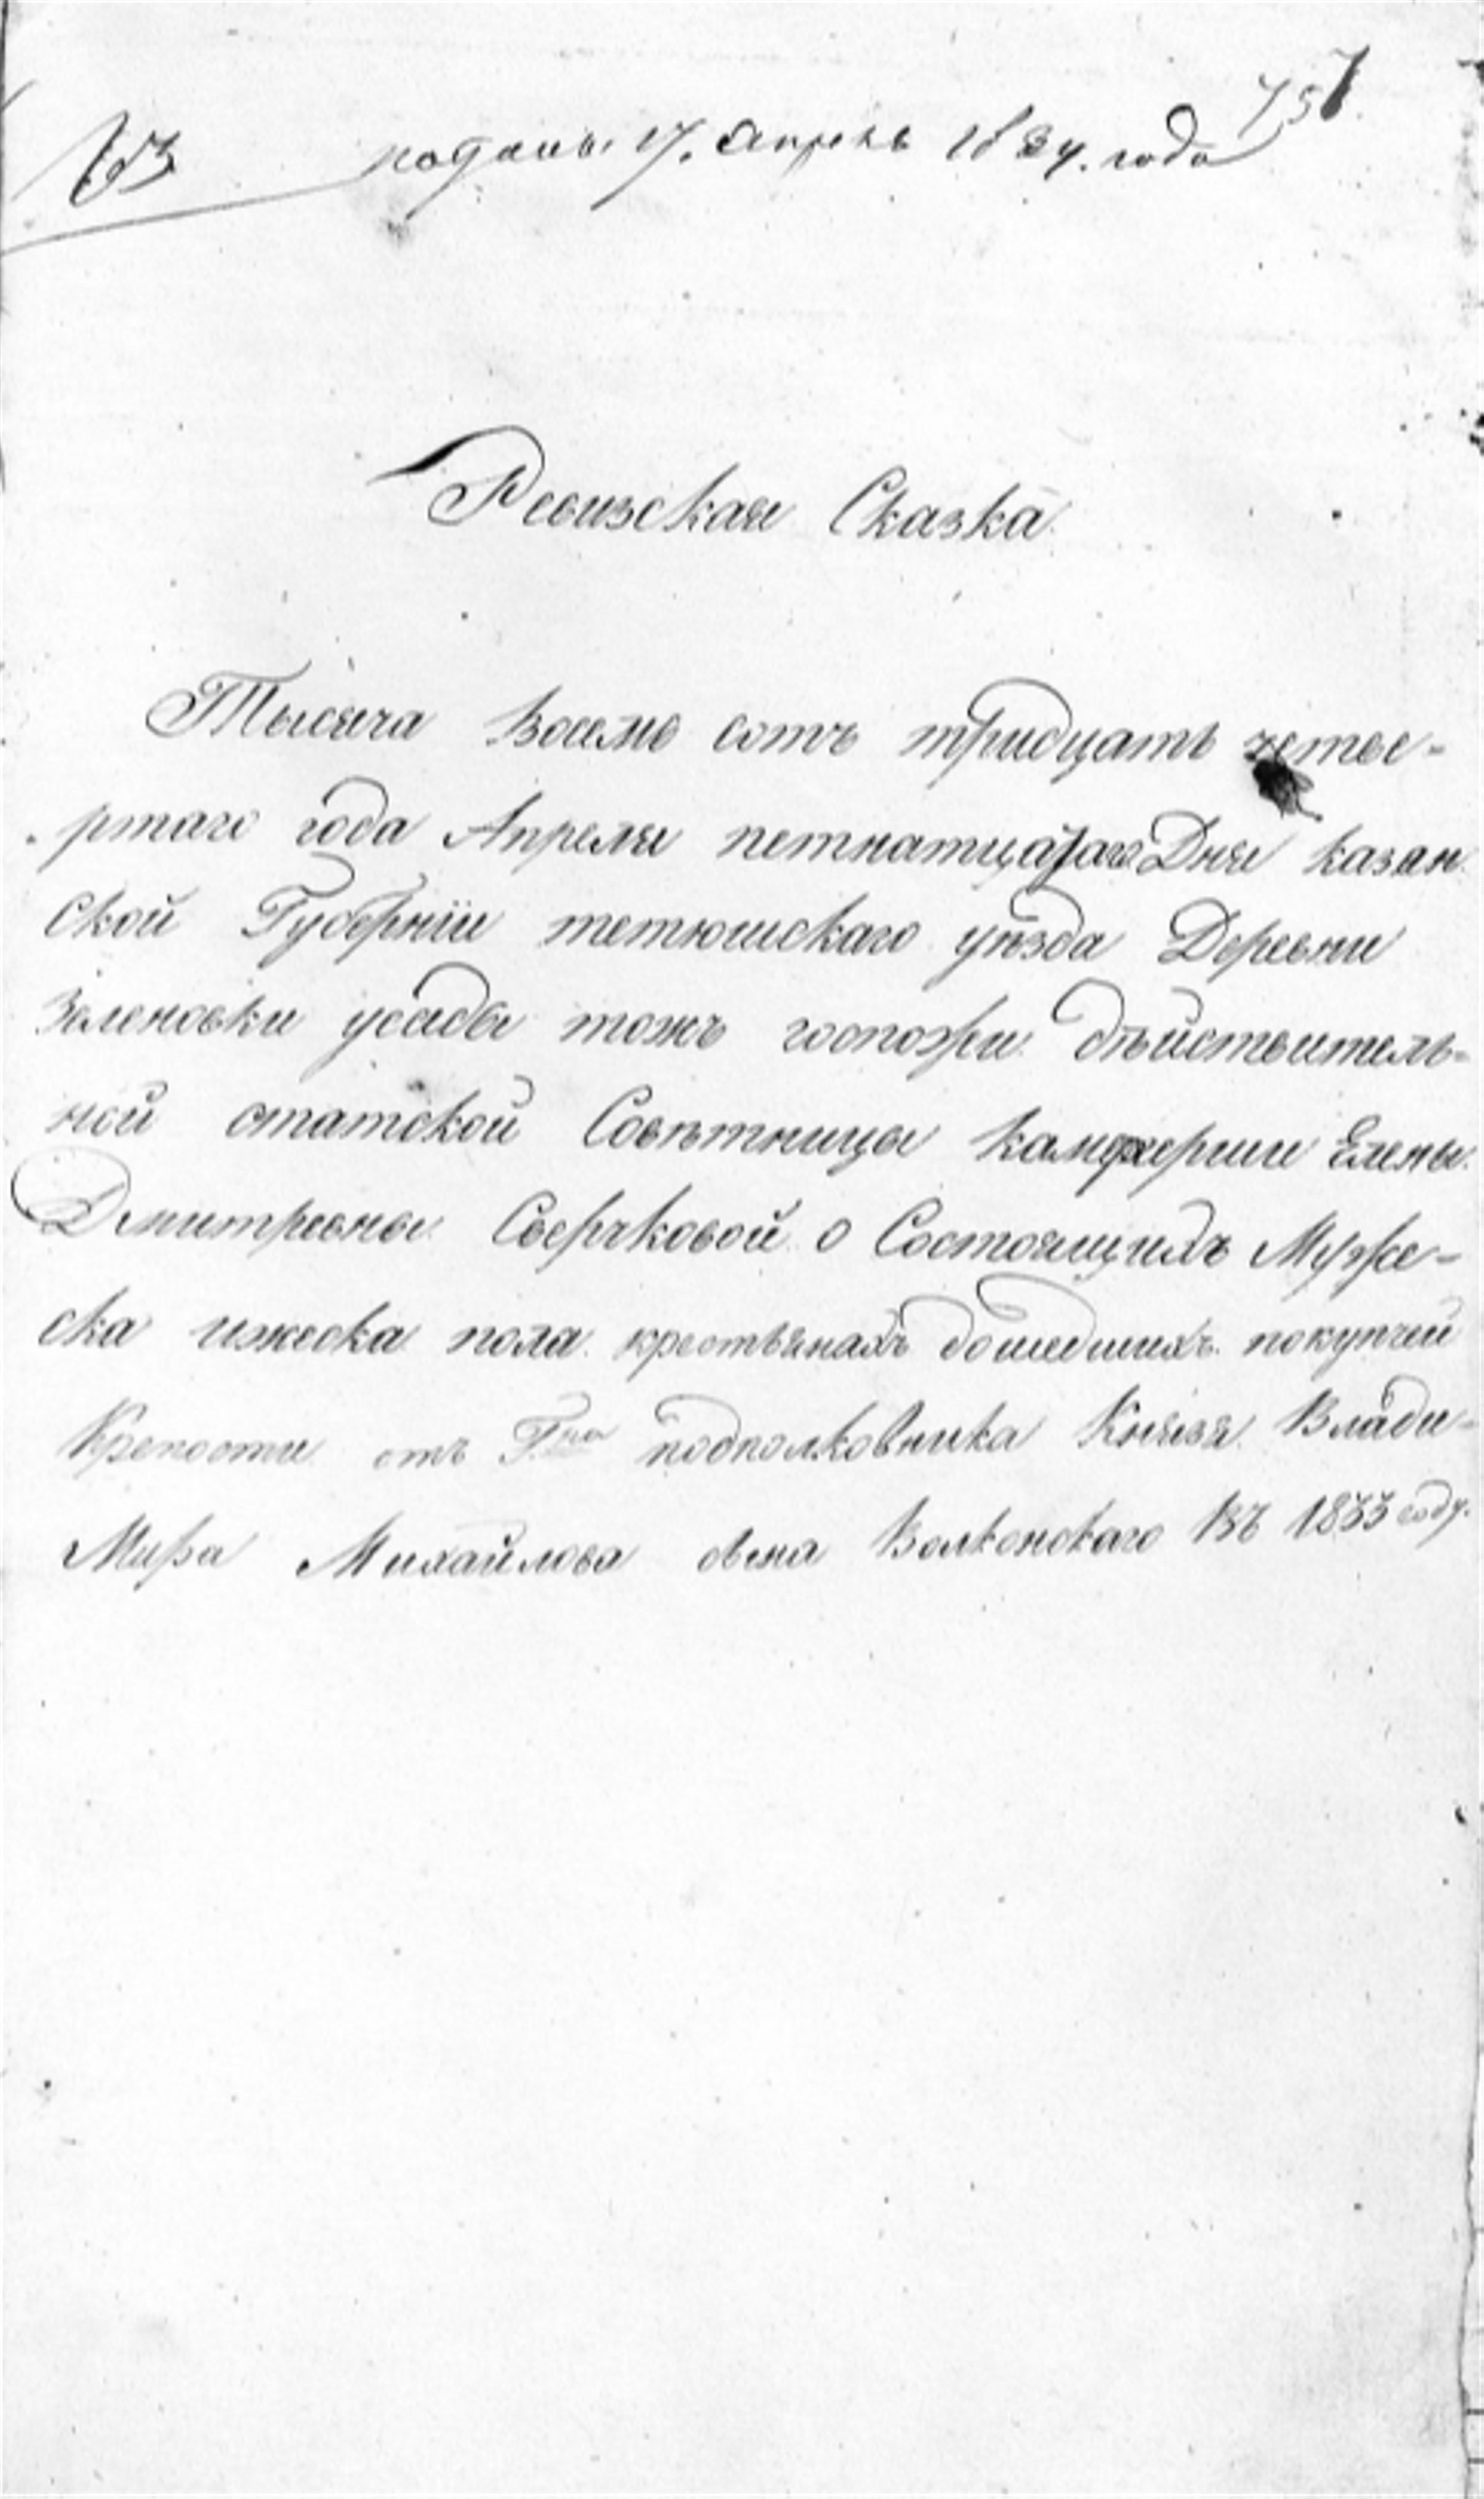 751
подана 17. апрель 1834. года
Ревизская Сказка
Тысяча Восемь сотъ тридцать четве-
ртаго года Апреля петнатцатаго Дня казан
ской Губернїи тетюшскаго уѣзда Деревни
Зеленовки усады тожъ госпожи дѣйствитель-
ной статской Совѣтницы камергерши Елены
Дмитревны Сверчковой о Состоящихъ Муже-
ска ижеска пола крестьянахъ дошедшихъ покупчей
Крепости отъ Гна подполковника Князя Влади-
Мира Михайлова сына Волконскаго Въ 1833 году.